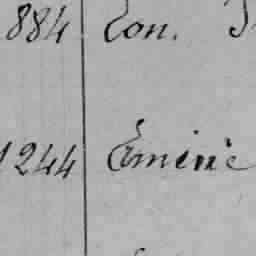 884 Con.
1244 Éminie